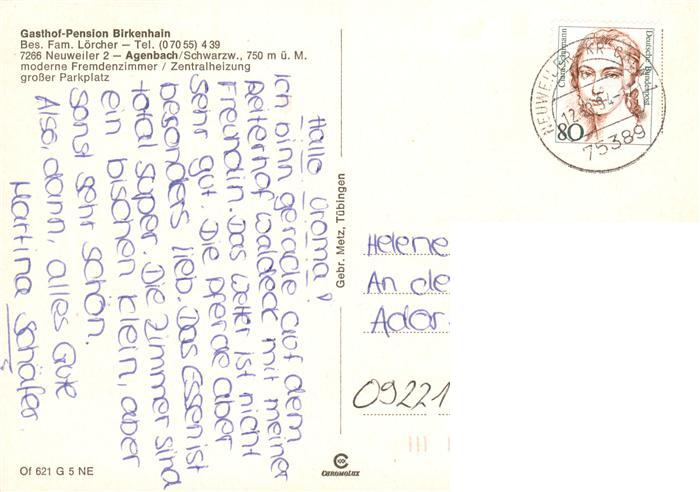 Gasthof-Pension Birkenhain
Bes. Fam. Lörcher — Tel. (0 70 55) 4 39
7266 Neuweiler 2 — Agenbach/Schwarzw., 750 m ü. M.
moderne Fremdenzimmer / Zentralheizung
großer Parkplatz
Hallo Uroma!
Ich binn gerade auf dem
Reiterhof Waldeck mit meiner
Freundin. Das Wetter ist nicht
sehr gut. Die Pferde aber
besonders lieb. Das Essen ist
total super. Die Zimmer sind
ein bischen klein, aber
sonst sehr schön.
Also, dann, alles Gute
Martina Schäfer
Of 621 G 5 NE
Gebr. Metz, Tübingen
CHROMOLUX
Deutsche Bundespost
80
75389
Helene
An de
Ador
09221